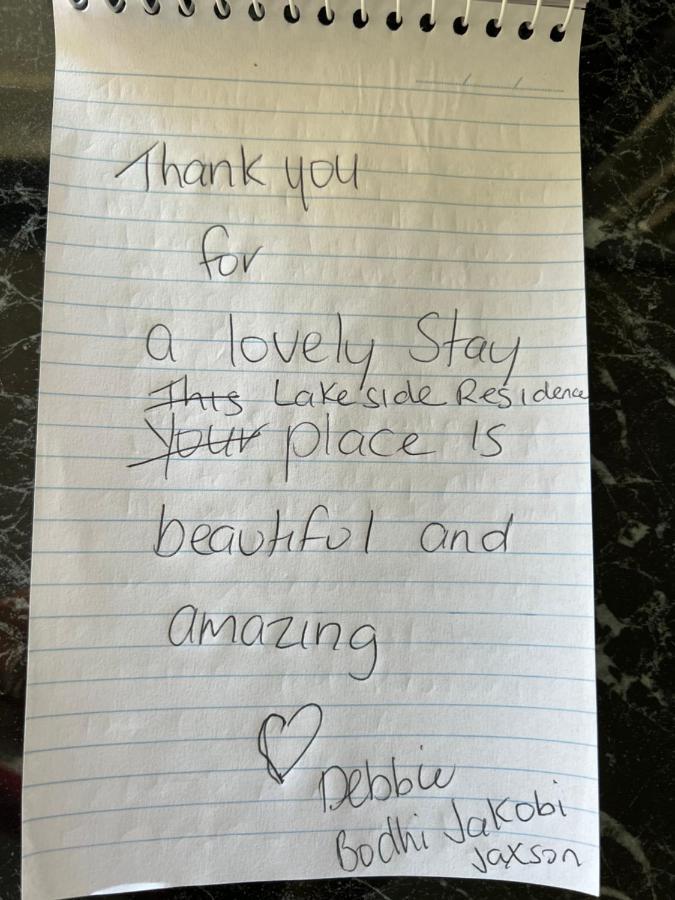 Thank you
for
a lovely Stay
This Lakeside Residence
Your place is
beautiful and
amazing
Debbie
Bodhi Jakobi
Jaxson